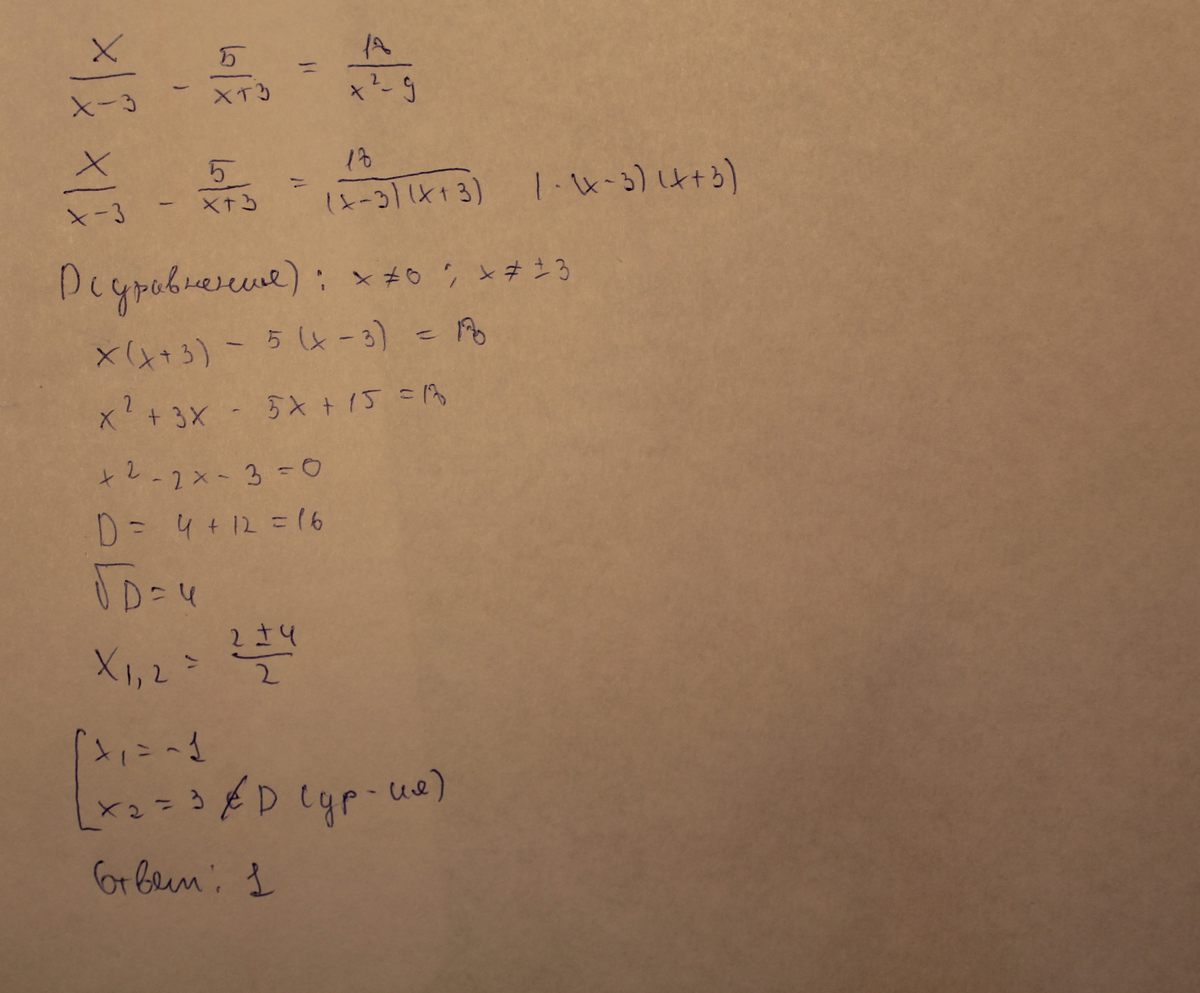 x/(x-3) - 5/(x+3) = 18/(x²-9)
x/(x-3) - 5/(x+3) = 18/((x-3)(x+3)) | · (x-3)(x+3)
D(уравнения): x≠0; x≠±3
x(x+3) - 5(x-3) = 18
x² + 3x - 5x + 15 = 18
x² - 2x - 3 = 0
D = 4 + 12 = 16
√D = 4
x1,2 = (2±4)/2
[ x1 = -1
x2 = 3 ∉ D (ур-ия)
Ответ: 1